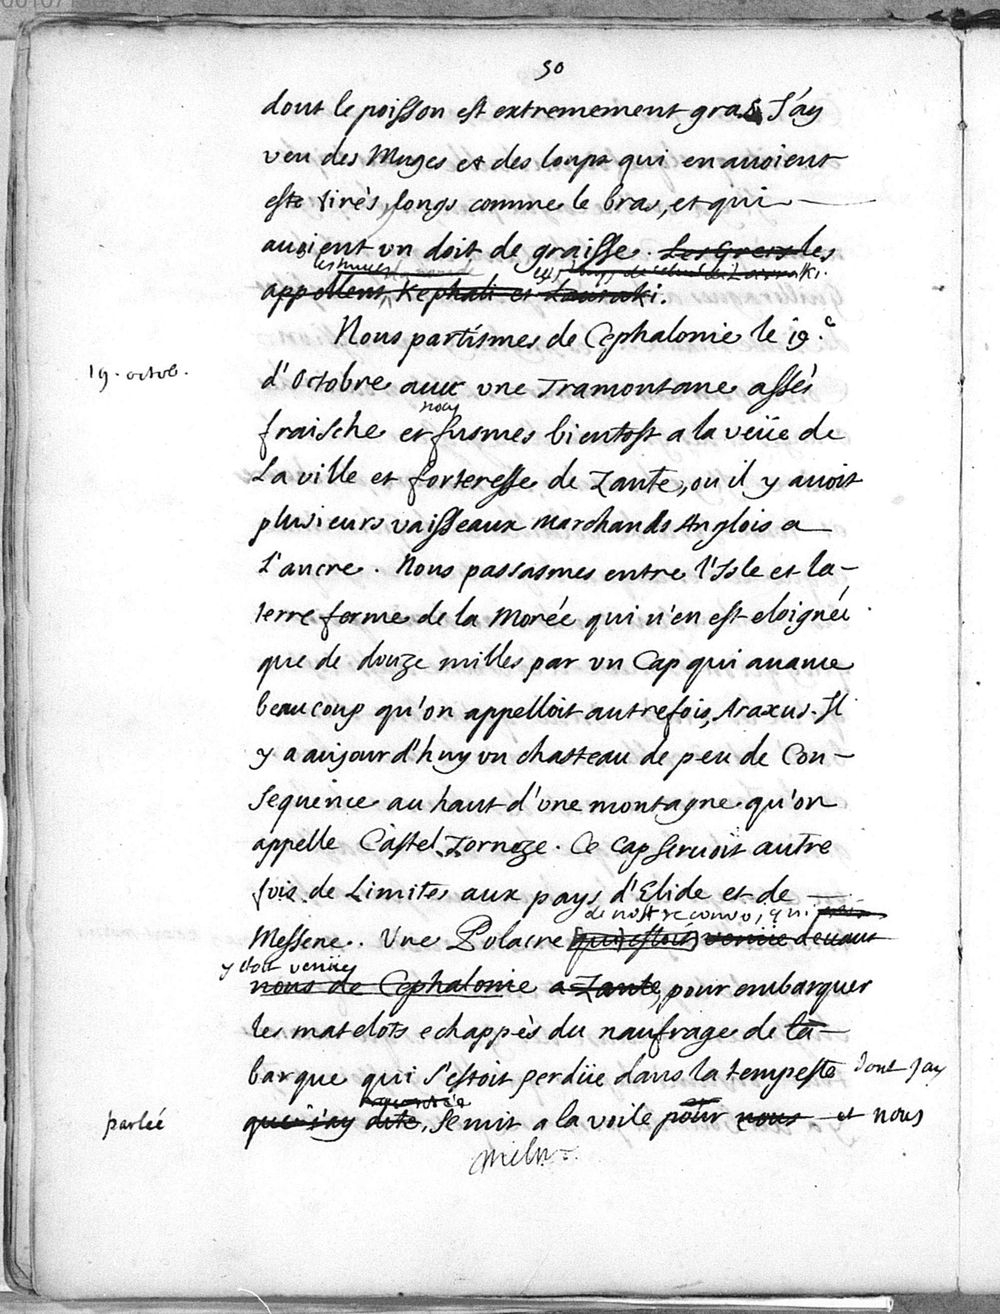 50
dont le poisson est extremement gras J'ay
veu des Muges et des loups qui en auoient
esté tirés, longs comme le bras, et qui
auoient vn doit de graisse. Les Grecs les
appellent Kephali et Lauraki.
Nous partismes de Cephalonie le 19.e
19. octob.
d'Octobre auec vne Tramontane assés
nous
fraische et fusmes bientost a la veüe de
La ville et forteresse de Zante, ou il y auoit
plusieurs vaisseaux marchands Anglois a
L'ancre. Nous passasmes entre l'Isle et la
terre ferme de la Morée qui n'en est eloignée
que de douze milles par vn Cap qui auance
beaucoup qu'on appelloit autrefois, Araxus. Il
y a aujourd'huy vn chasteau de peu de Con-
sequence au haut d'vne montagne qu'on
appelle Castel Tornoze. Ce Cap seruoit autre
fois de Limites aux pays d'Elide et de
de nostre conuoi, qui
Messene. Vne Polacre qui estoit venüe deuant
y etoit venüe
nous de Cephalonie a Zante, pour embarquer
les matelots echappés du naufrage de la
barque qui s'estoit perdüe dans la tempeste dont J'ay
parlé
que j'ay dite, Se mit a la voile pour nous et nous